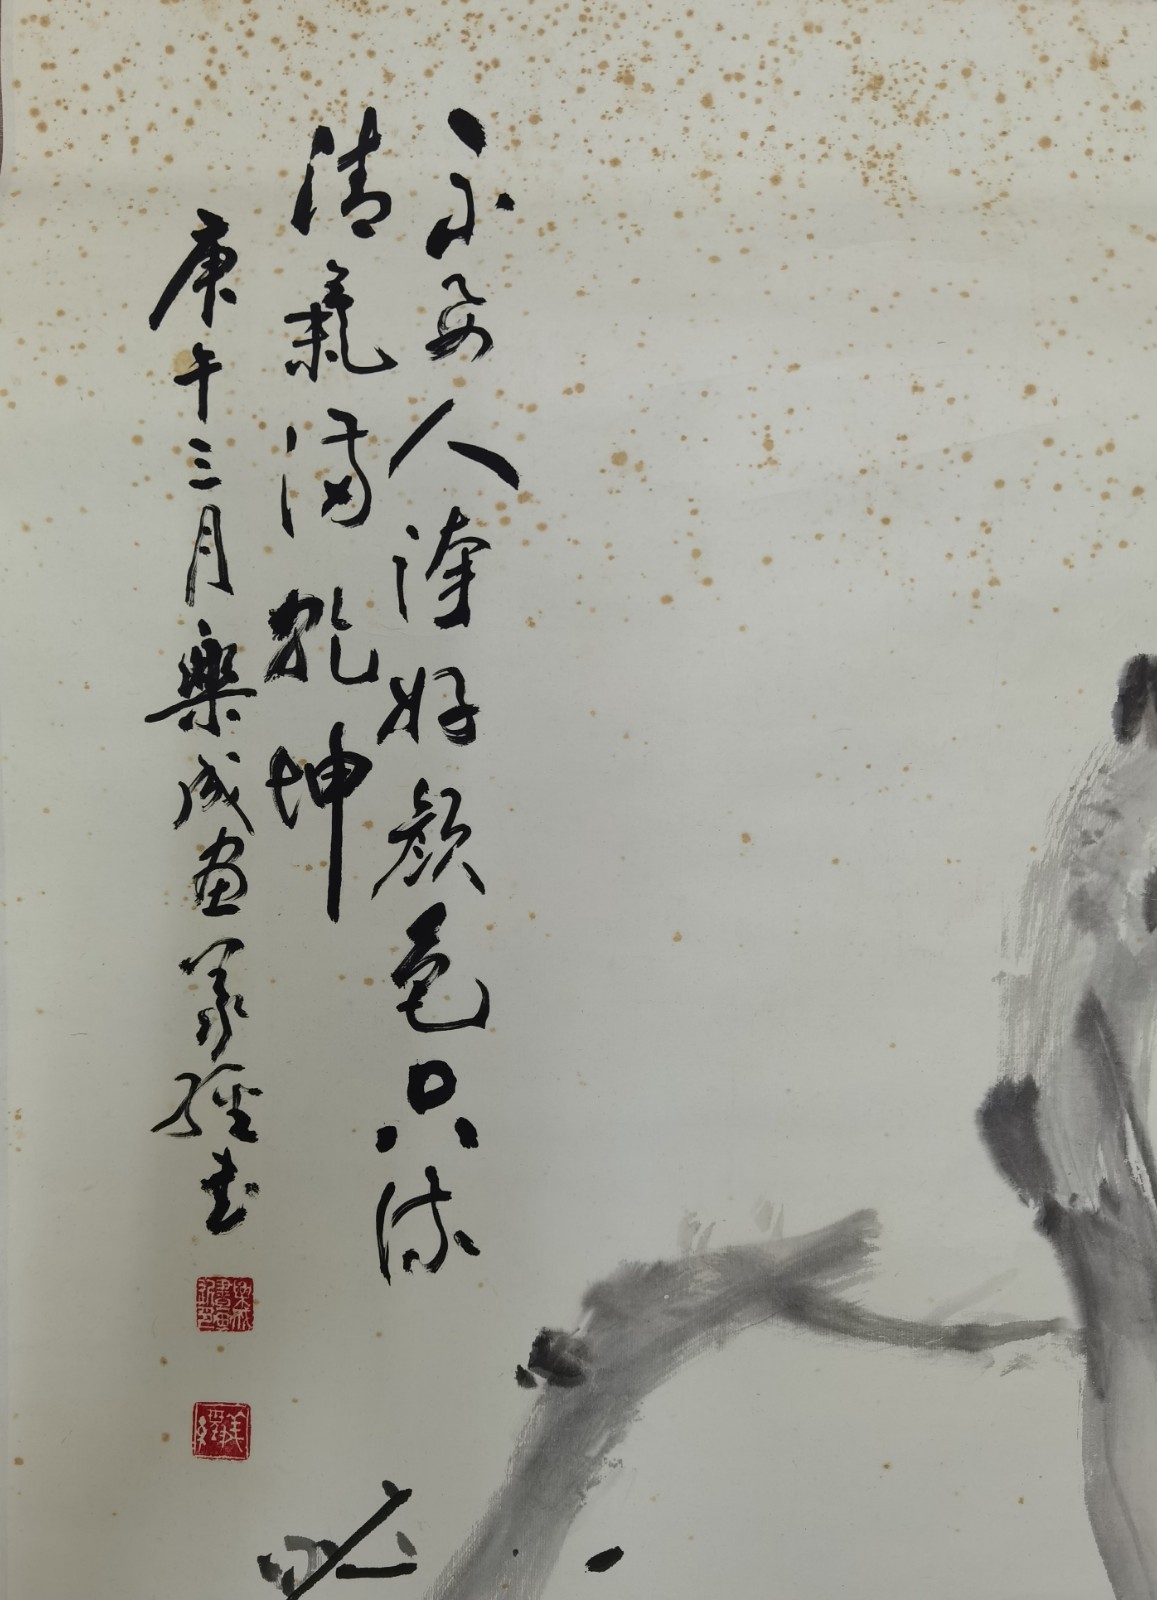 不要人誇好顏色只流
清氣滿乾坤
庚午三月樂成畫義經书